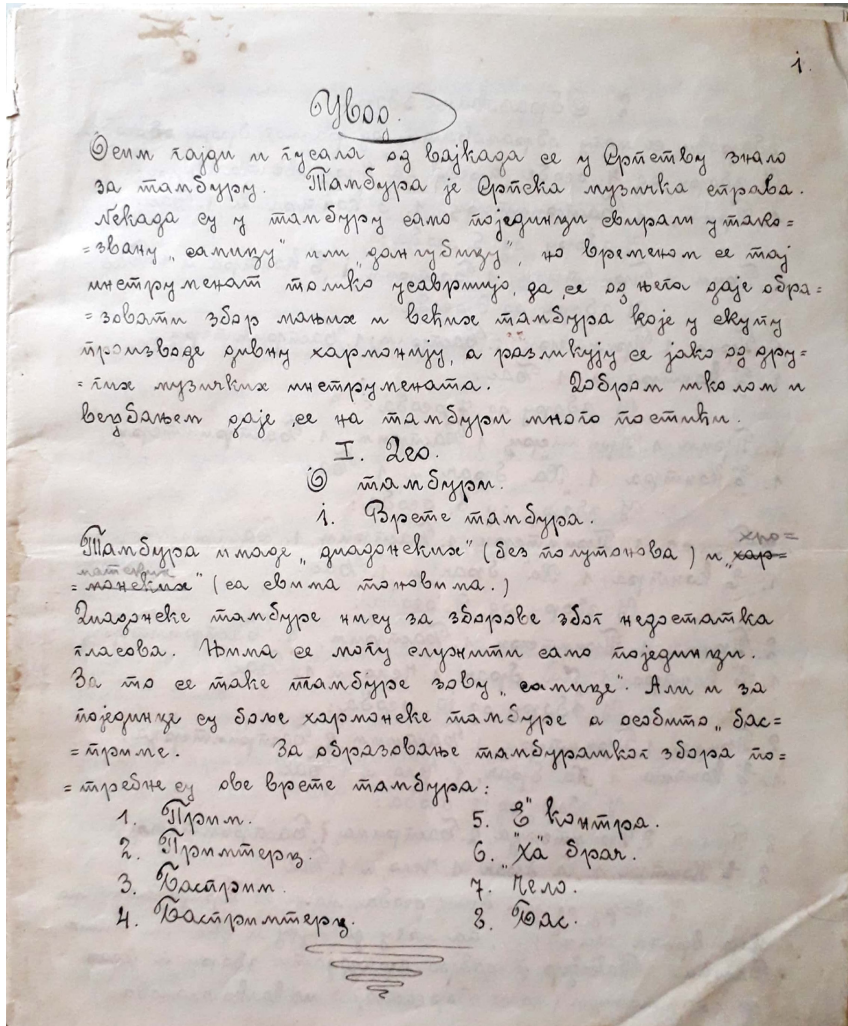 1.
Увод.
Осим гајди и гусала од вајкада се у Српству знало
за тамбуру. Тамбура је Српска музичка справа.
Некада су у тамбуру само појединци свирали у тако=
=звану „самицу" или „дангубицу", но временом се тај
инструменат толико усавршијо, да се од њега даје обра=
=зовати збор мањих и већих тамбура које у скупу
производе дивну хармонију, а разликују се јако од дру=
=гих музичких инструмената. Добром школом и
вежбањем даје се на тамбури много постићи.
I. Део.
О тамбури.
1. Врсте тамбура.
Тамбура имаде „диадонских" (без полутонова) и „хар= хро=
=монских" матских (са свима тоновима.)
Диадонске тамбуре нису за зборове због недостатка
гласова. Њима се могу служити само појединци.
За то се таке тамбуре зову „самице". Али и за
појединце су боље хармонске тамбуре а особито „бас=
=приме. За образовање тамбурашког збора по=
=требне су ове врсте тамбура:
1. Прим.
2. Примтерц.
3. Басприм.
4. Баспримтерц.
5. „Е" контра.
6. „Ха" брач.
7. Чело.
8. Бас.